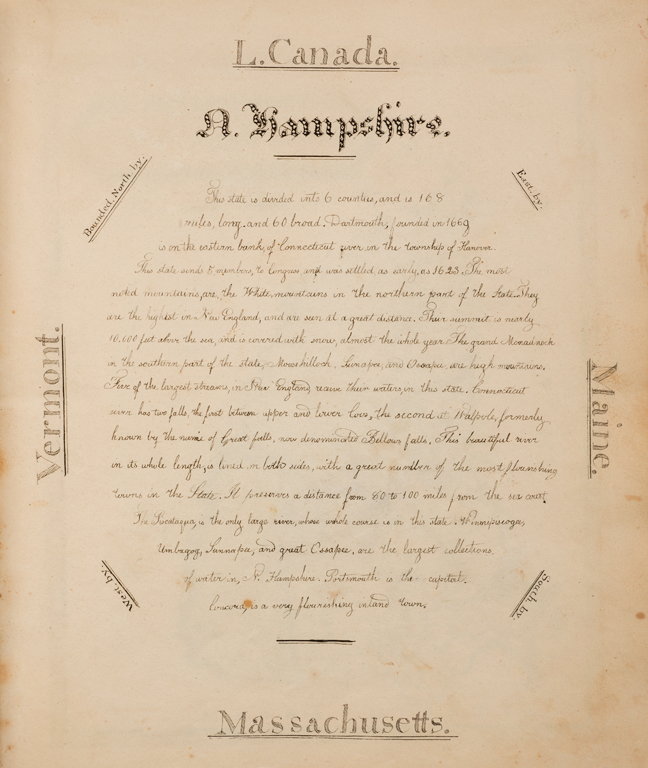 L. Canada.
N. Hampshire.
Bounded North by:
East, by:
This state is divided into 6 counties, and is 168
miles, long, and 60 broad. Dartmouth, founded in 1669
is on the eastern bank, of Connecticut river in the township of Hanover.
This state sends 5 members, to Congress and was settled, as early, as 1623. The most
noted mountains, are, the White, mountains in the northern part of the State. They
are the highest in New England, and are seen at a great distance. Their summit is nearly
10.000 feet above the sea, and is covered with snow, almost the whole year. The grand Monadnock
in the southern part of the state, Mooshilloch, Sunapee, and Ossapee are high mountains.
Five of the largest streams, in New England receive their waters, in this state. Connecticut
river has two falls, the first between upper and lower Coos, the second at Walpole, formerly
known by the name of Great falls, now denominated Bellows falls. This beautiful river
in its whole length, is lined on both sides, with a great number of the most flourishing
towns in the State. It preserves a distance from 80 to 100 miles from the sea coast.
The Piscataqua, is the only large river, whose whole course is in this state. Winnipiseoga,
Umbagog, Sunnapee, and great Ossapee, are the largest collections
of water in, N. Hampshire. Portsmouth is the capital.
Concord, is a very flourishing inland town.
Vermont.
Maine.
West, by.
South, by.
Massachusetts.